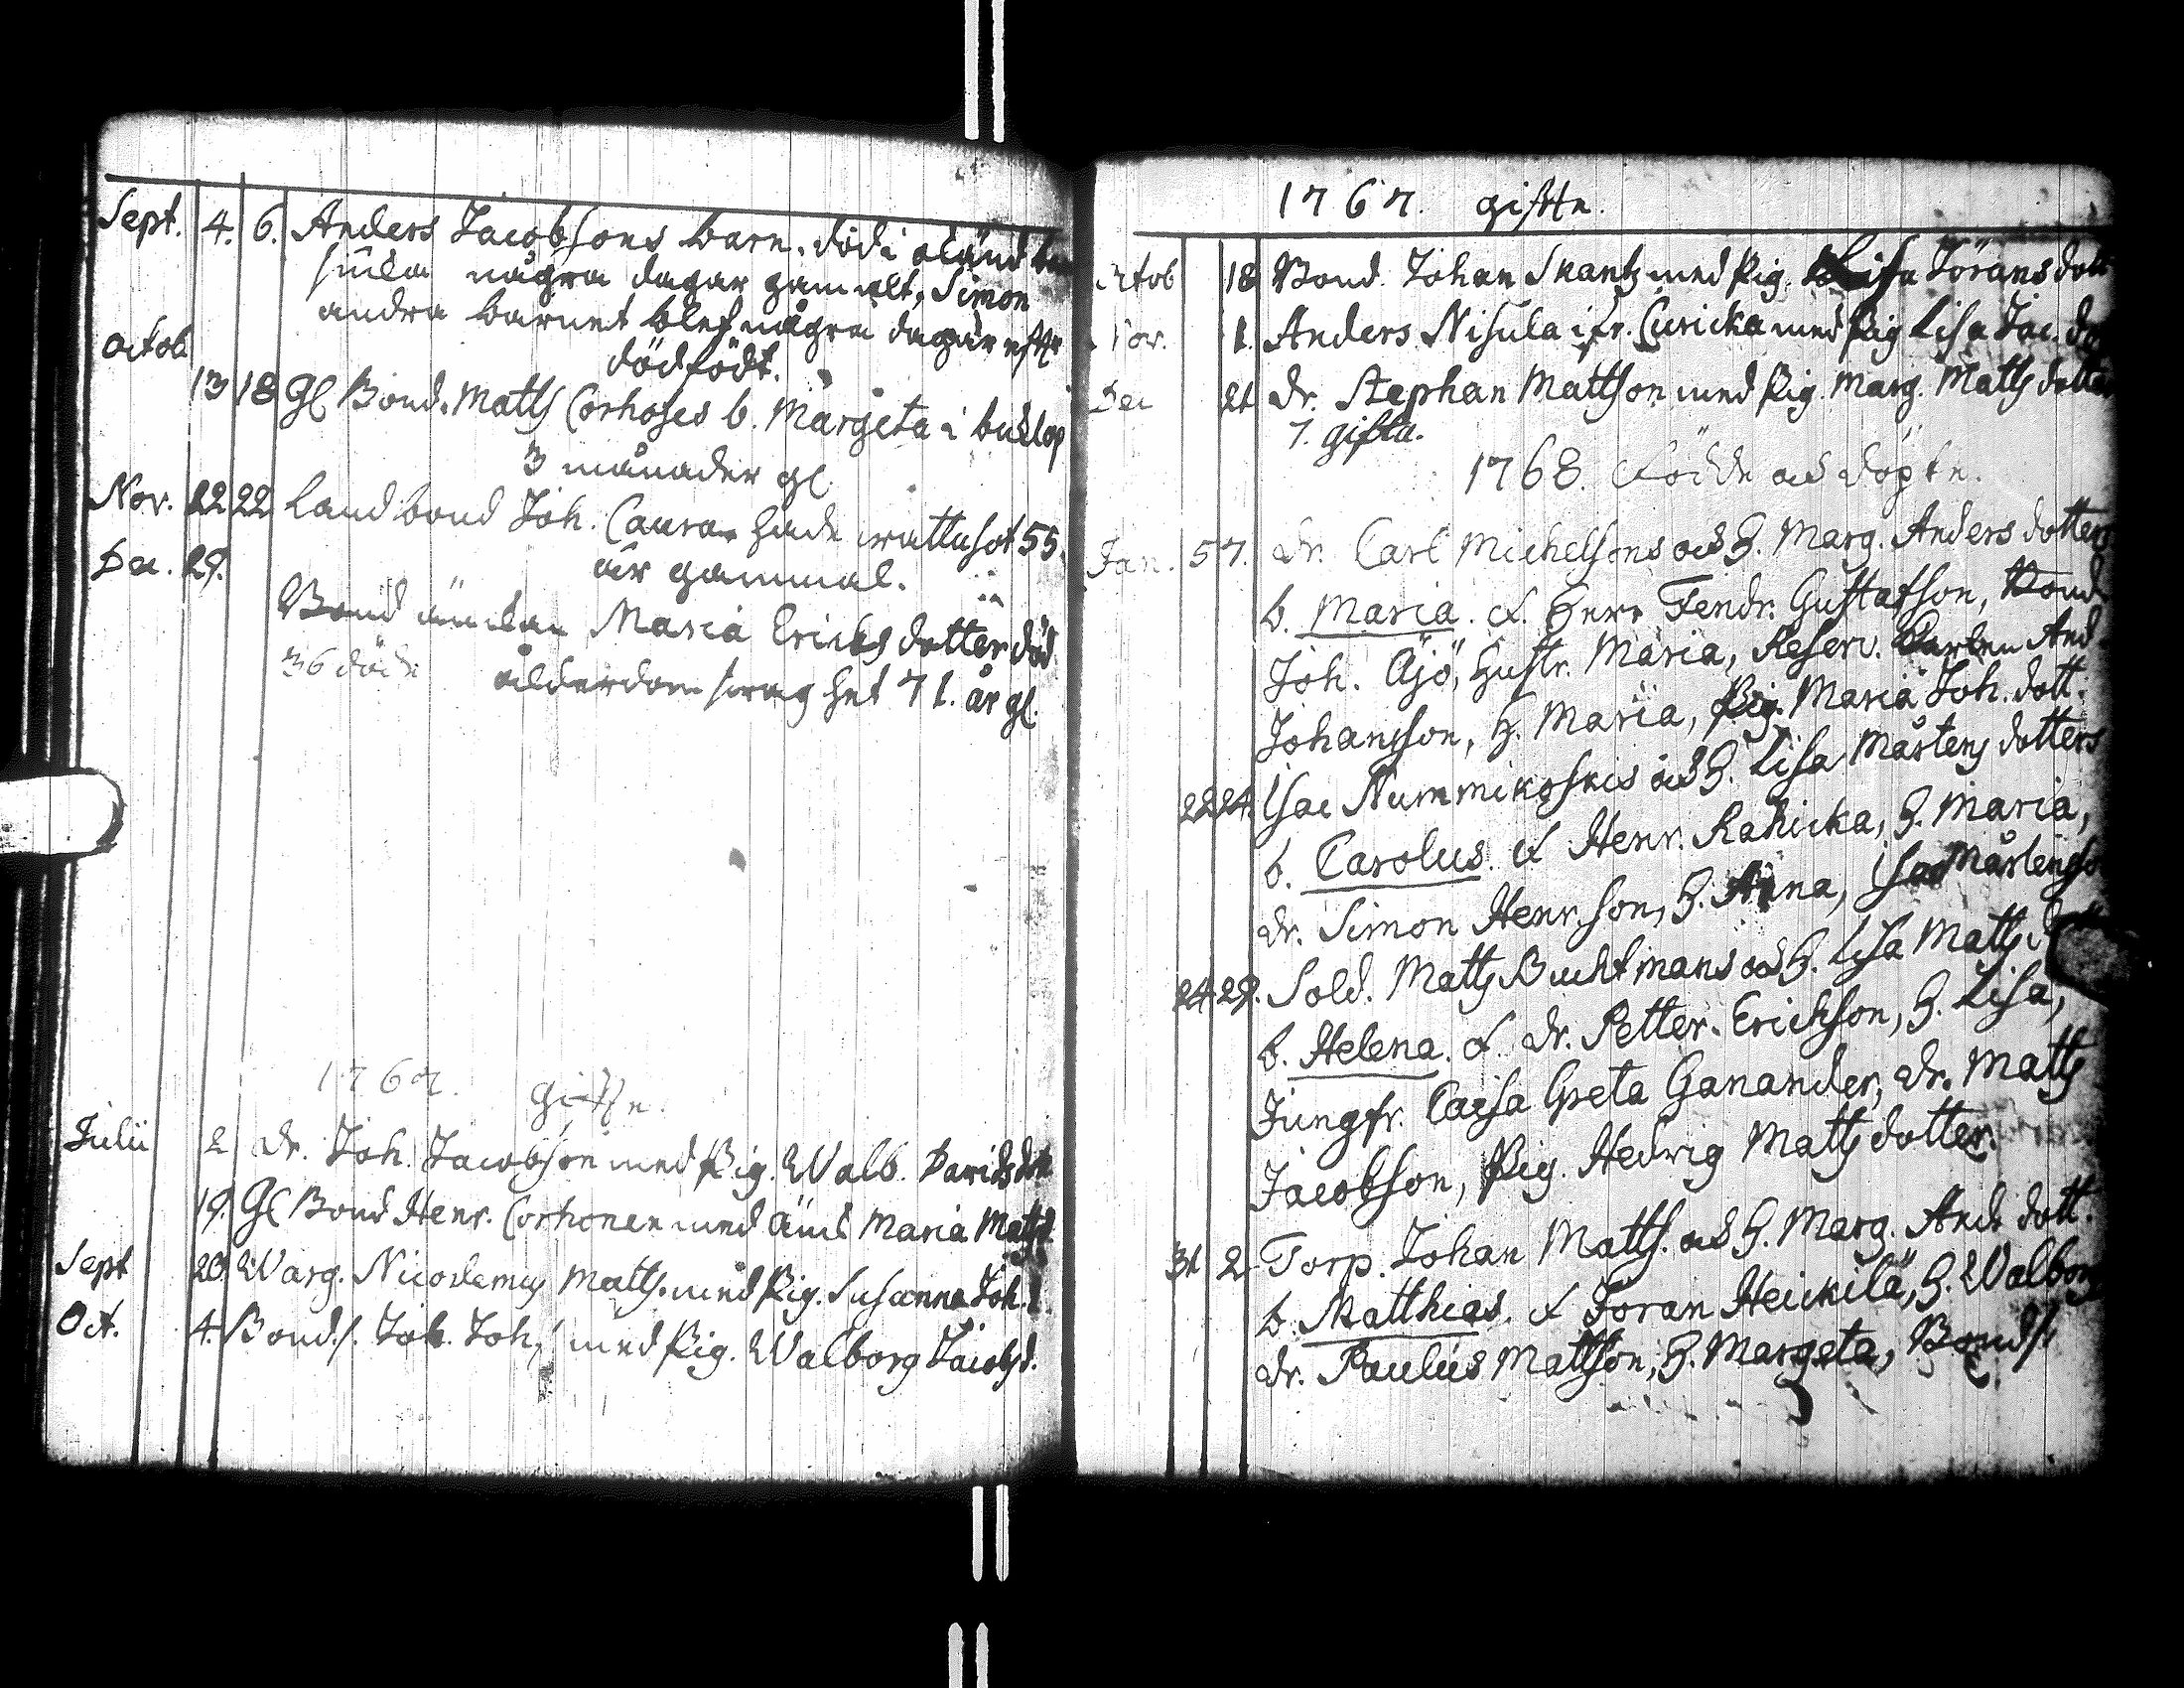 Sept. 4. 6. Anders Jacobsons barn. död i okänd
siuka några dagar gamalt, Simon
andra barnet blef några dagar efter
Octob dödfödt.
13 18 Gl Bond. Matts Corhoses b. Margeta i
3 månader gl
Nov. 22 22 Landbond Joh. Caura hade wattusot 55.
Dec. 29. år gammal.
Bond änckan Maria Ericks dotter död
36 döde ålderdoms swaghet 71. år gl.
1767. gifte.
Julii 2 dr. Joh. Jacobson med Pig. Walb. Davids dott
19. Gl Bond Henr. Corhonen med änck Maria Matsd.
Sept 20. Warg. Nicodemus Matts. med Pig. Susanna Joh. d
Oct. 4. Bonds. Joh. Joh. med Pig. Walborg Jacobsd.
1767. gifte.
Octob 18 Bond. Johan Skantz med Pig. Lisa Jörans dott
Nov. 1. Anders Nisula ifr. Curicka med Pig Lisa Jac. do
Dec 21 dr. Stephan Mattson med Pig. Marg. Matts dotter
7. gifta.
1768. Födde och döpte.
Jan. 5 7. dr. Carl Michelsons och H. Marg. Anders dotters
b. Maria. f. Herr Fendr. Gustafson, Bond
Joh. Äjö, Hustr. Maria, Reserv. Carlen And
Johansson, H. Maria, Pig. Maria Joh. dott.
22 24. Isac Nummikoskis och H. Lisa Mårtens dotters
b. Carolus. f. Henr. Rahicka, H. Maria,
dr. Simon Henr. son, H. Anna, Isac Mårtenso
24 29. Sold. Matts Buchtmans och H. Lisa Matts d
b. Helena. f. dr. Petter. Erickson, H. Lisa,
Jungfr. Caisa Greta Ganander, dr. Matts
Jacobson, Pig. Hedvig Matts dotter.
31 2 Torp. Johan Matts. och H. Marg. And. dott.
b. Matthias. f. Joran Heickilä, H. Walborg
dr. Paulus Mattson, H. Margeta, Bonds.